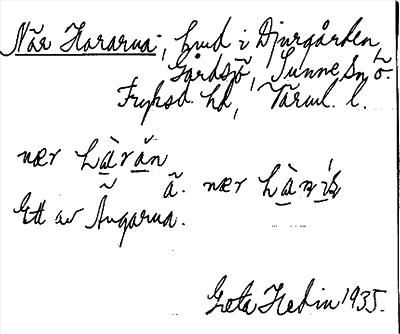 När Hararna, hmd i Djurgården,
Gårdsjö, Sunne sn ö.
Fryksd. hd, Värml. l.
nær hàrăn
ã. nær hàṇìs
Ett av Ängarna.
Greta Hedin 1935.